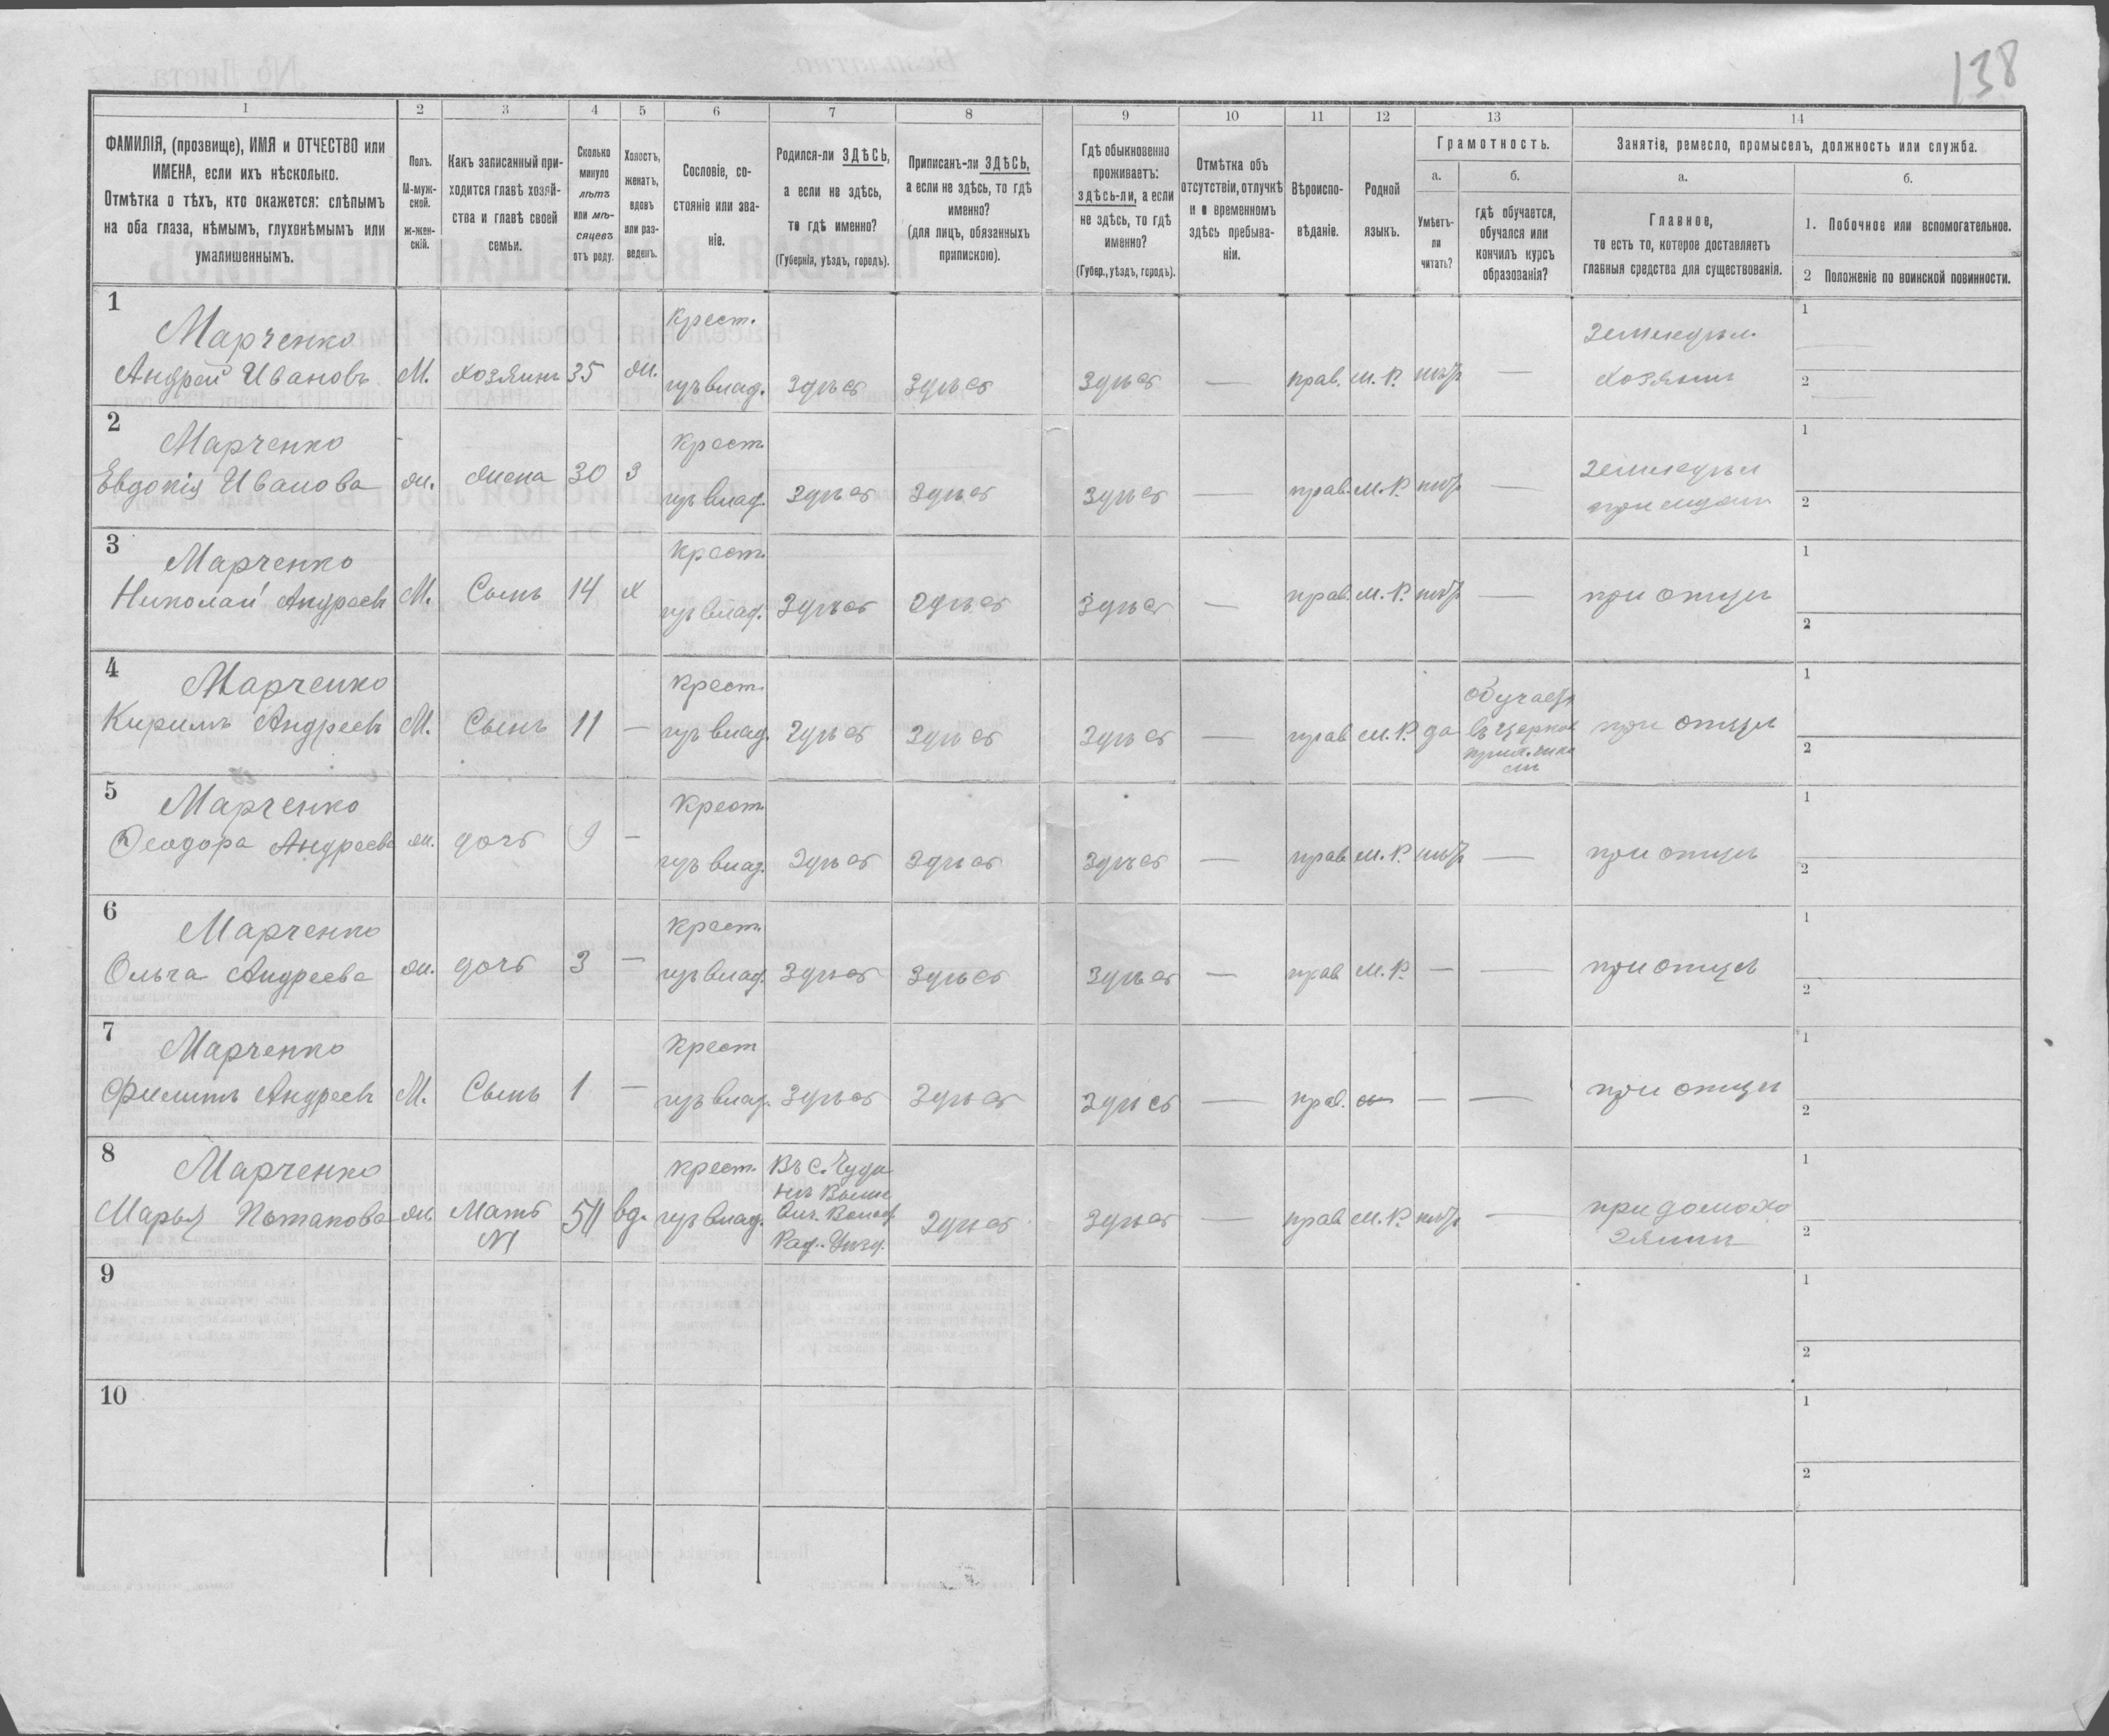 138
1 2 3 4 5 6 7 8 9 10 11 12 13 14
ФАМИЛІЯ, (прозвище), ИМЯ и ОТЧЕСТВО или
ИМЕНА, если ихъ нѣсколько.
Отмѣтка о тѣхъ, кто окажется: слѣпымъ
на оба глаза, нѣмымъ, глухонѣмымъ или
умалишеннымъ.
Полъ.
М-муж-
ской.
ж-жен-
скій.
Какъ записанный при-
ходится главѣ хозяй-
ства и главѣ своей
семьи.
Сколько
минуло
лѣтъ
или мѣ-
сяцевъ
отъ роду.
Холостъ,
женатъ,
вдовъ
или раз-
веденъ.
Сословіе, со-
стояніе или зва-
ніе.
Родился-ли ЗДѢСЬ,
а если не здѣсь,
то гдѣ именно?
(Губернія, уѣздъ, городъ).
Приписанъ-ли ЗДѢСЬ,
а если не здѣсь, то гдѣ
именно?
(для лицъ, обязанныхъ
припискою).
Гдѣ обыкновенно
проживаетъ:
здѣсь-ли, а если
не здѣсь, то гдѣ
именно?
(Губер., уѣздъ, городъ).
Отмѣтка объ
отсутствіи, отлучкѣ
и о временномъ
здѣсь пребыва-
ніи.
Вѣроиспо-
вѣданіе.
Родной
языкъ.
Грамотность.
а.
Умѣетъ-
ли
читать?
б.
гдѣ обучается,
обучался или
кончилъ курсъ
образованія?
Занятіе, ремесло, промыселъ, должность или служба.
а.
Главное,
то есть то, которое доставляетъ
главныя средства для существованія.
б.
1. Побочное или вспомогательное.
2 Положеніе по воинской повинности.
1 Марченко Крест. Земледѣл. 1
Андрей Ивановъ М. хозяинъ 35 ж. изъ влад. Здѣсь Здѣсь Здѣсь — прав. М.Р. нѣтъ — хозяинъ 2
2 Марченко Крест. Земледѣл 1
Евдокія Иванова ж. жена 30 З изъ влад. Здѣсь Здѣсь Здѣсь — прав. М.Р. нѣтъ — при мужѣ 2
3 Марченко Крест. 1
Николай Андреевъ М. Сынъ 14 х изъ влад. Здѣсь Здѣсь Здѣсь — прав. М.Р. нѣтъ — при отцѣ 2
4 Марченко Крест. обучается 1
Кирилъ Андреевъ М. Сынъ 11 — изъ влад. Здѣсь Здѣсь Здѣсь — прав М.Р. да въ церков при отцѣ 2
5 Марченко Крест. 1
Ѳеодора Андреева ж. дочь 9 — изъ влад. Здѣсь Здѣсь Здѣсь — прав М.Р. нѣтъ — при отцѣ 2
6 Марченко Крест. 1
Ольга Андреева ж. дочь 3 — изъ влад. Здѣсь Здѣсь Здѣсь — прав М.Р. — — при отцѣ 2
7 Марченко Крест 1
Филипъ Андреевъ М. Сынъ 1 — изъ влад. Здѣсь Здѣсь Здѣсь — прав. — — при отцѣ 2
8 Марченко Крест. Въ С. Чудинѣ Выше 1
Марья Потапова ж. Мать вд. изъ влад. Вич. Волос. Рад. Уѣзд. Здѣсь Здѣсь — прав М.Р. нѣтъ — при домохозяинѣ 2
9 1
2
10 1
2